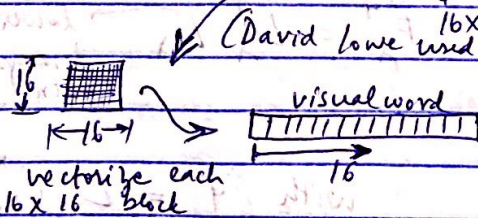 16x
(David lowe used
16
visual word
16
16
vectorize each
16 x 16 block